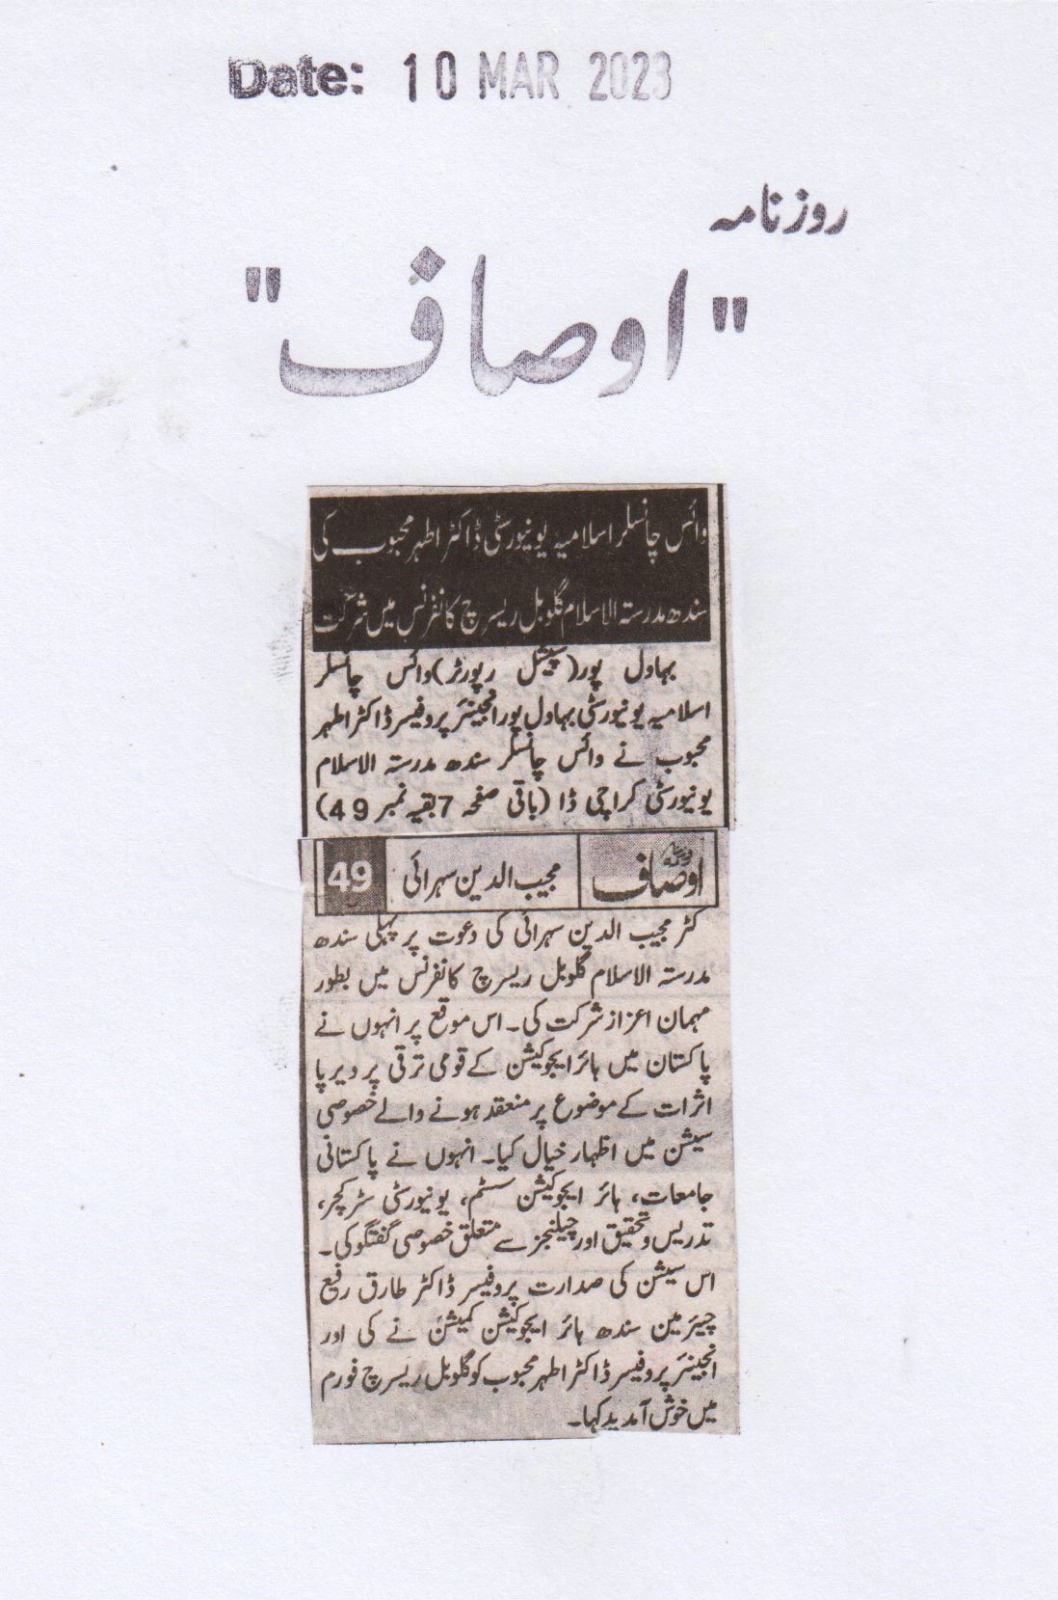 Date: 10 MAR 2023
روزنامہ
"اوصاف"
وائس چانسلر اسلامیہ یونیورسٹی ڈاکٹر اطہر محبوب کی
سندھ مدرستہ الاسلام گلوبل ریسرچ کانفرنس میں شرکت
بہاول پور (سپیشل رپورٹر) وائس چانسلر
اسلامیہ یونیورسٹی بہاول پور انجینئر پروفیسر ڈاکٹر اطہر
محبوب نے وائس چانسلر سندھ مدرستہ الاسلام
یونیورسٹی کراچی ڈا (باقی صفحہ 7 بقیہ نمبر 49)
اوصاف مجیب الدین سہرائی 49
کٹر مجیب الدین سہرائی کی دعوت پر پہلی سندھ
مدرستہ الاسلام گلوبل ریسرچ کانفرنس میں بطور
مہمان اعزاز شرکت کی۔ اس موقع پر انہوں نے
پاکستان میں ہائر ایجوکیشن کے قومی ترقی پر دیرپا
اثرات کے موضوع پر منعقد ہونے والے خصوصی
سیشن میں اظہار خیال کیا۔ انہوں نے پاکستانی
جامعات، ہائر ایجوکیشن سسٹم، یونیورسٹی سٹرکچر،
تدریس و تحقیق اور چیلنجز سے متعلق خصوصی گفتگو کی۔
اس سیشن کی صدارت پروفیسر ڈاکٹر طارق رفیع
چیئرمین سندھ ہائر ایجوکیشن کمیشن نے کی اور
انجینئر پروفیسر ڈاکٹر اطہر محبوب کو گلوبل ریسرچ فورم
میں خوش آمدید کہا۔